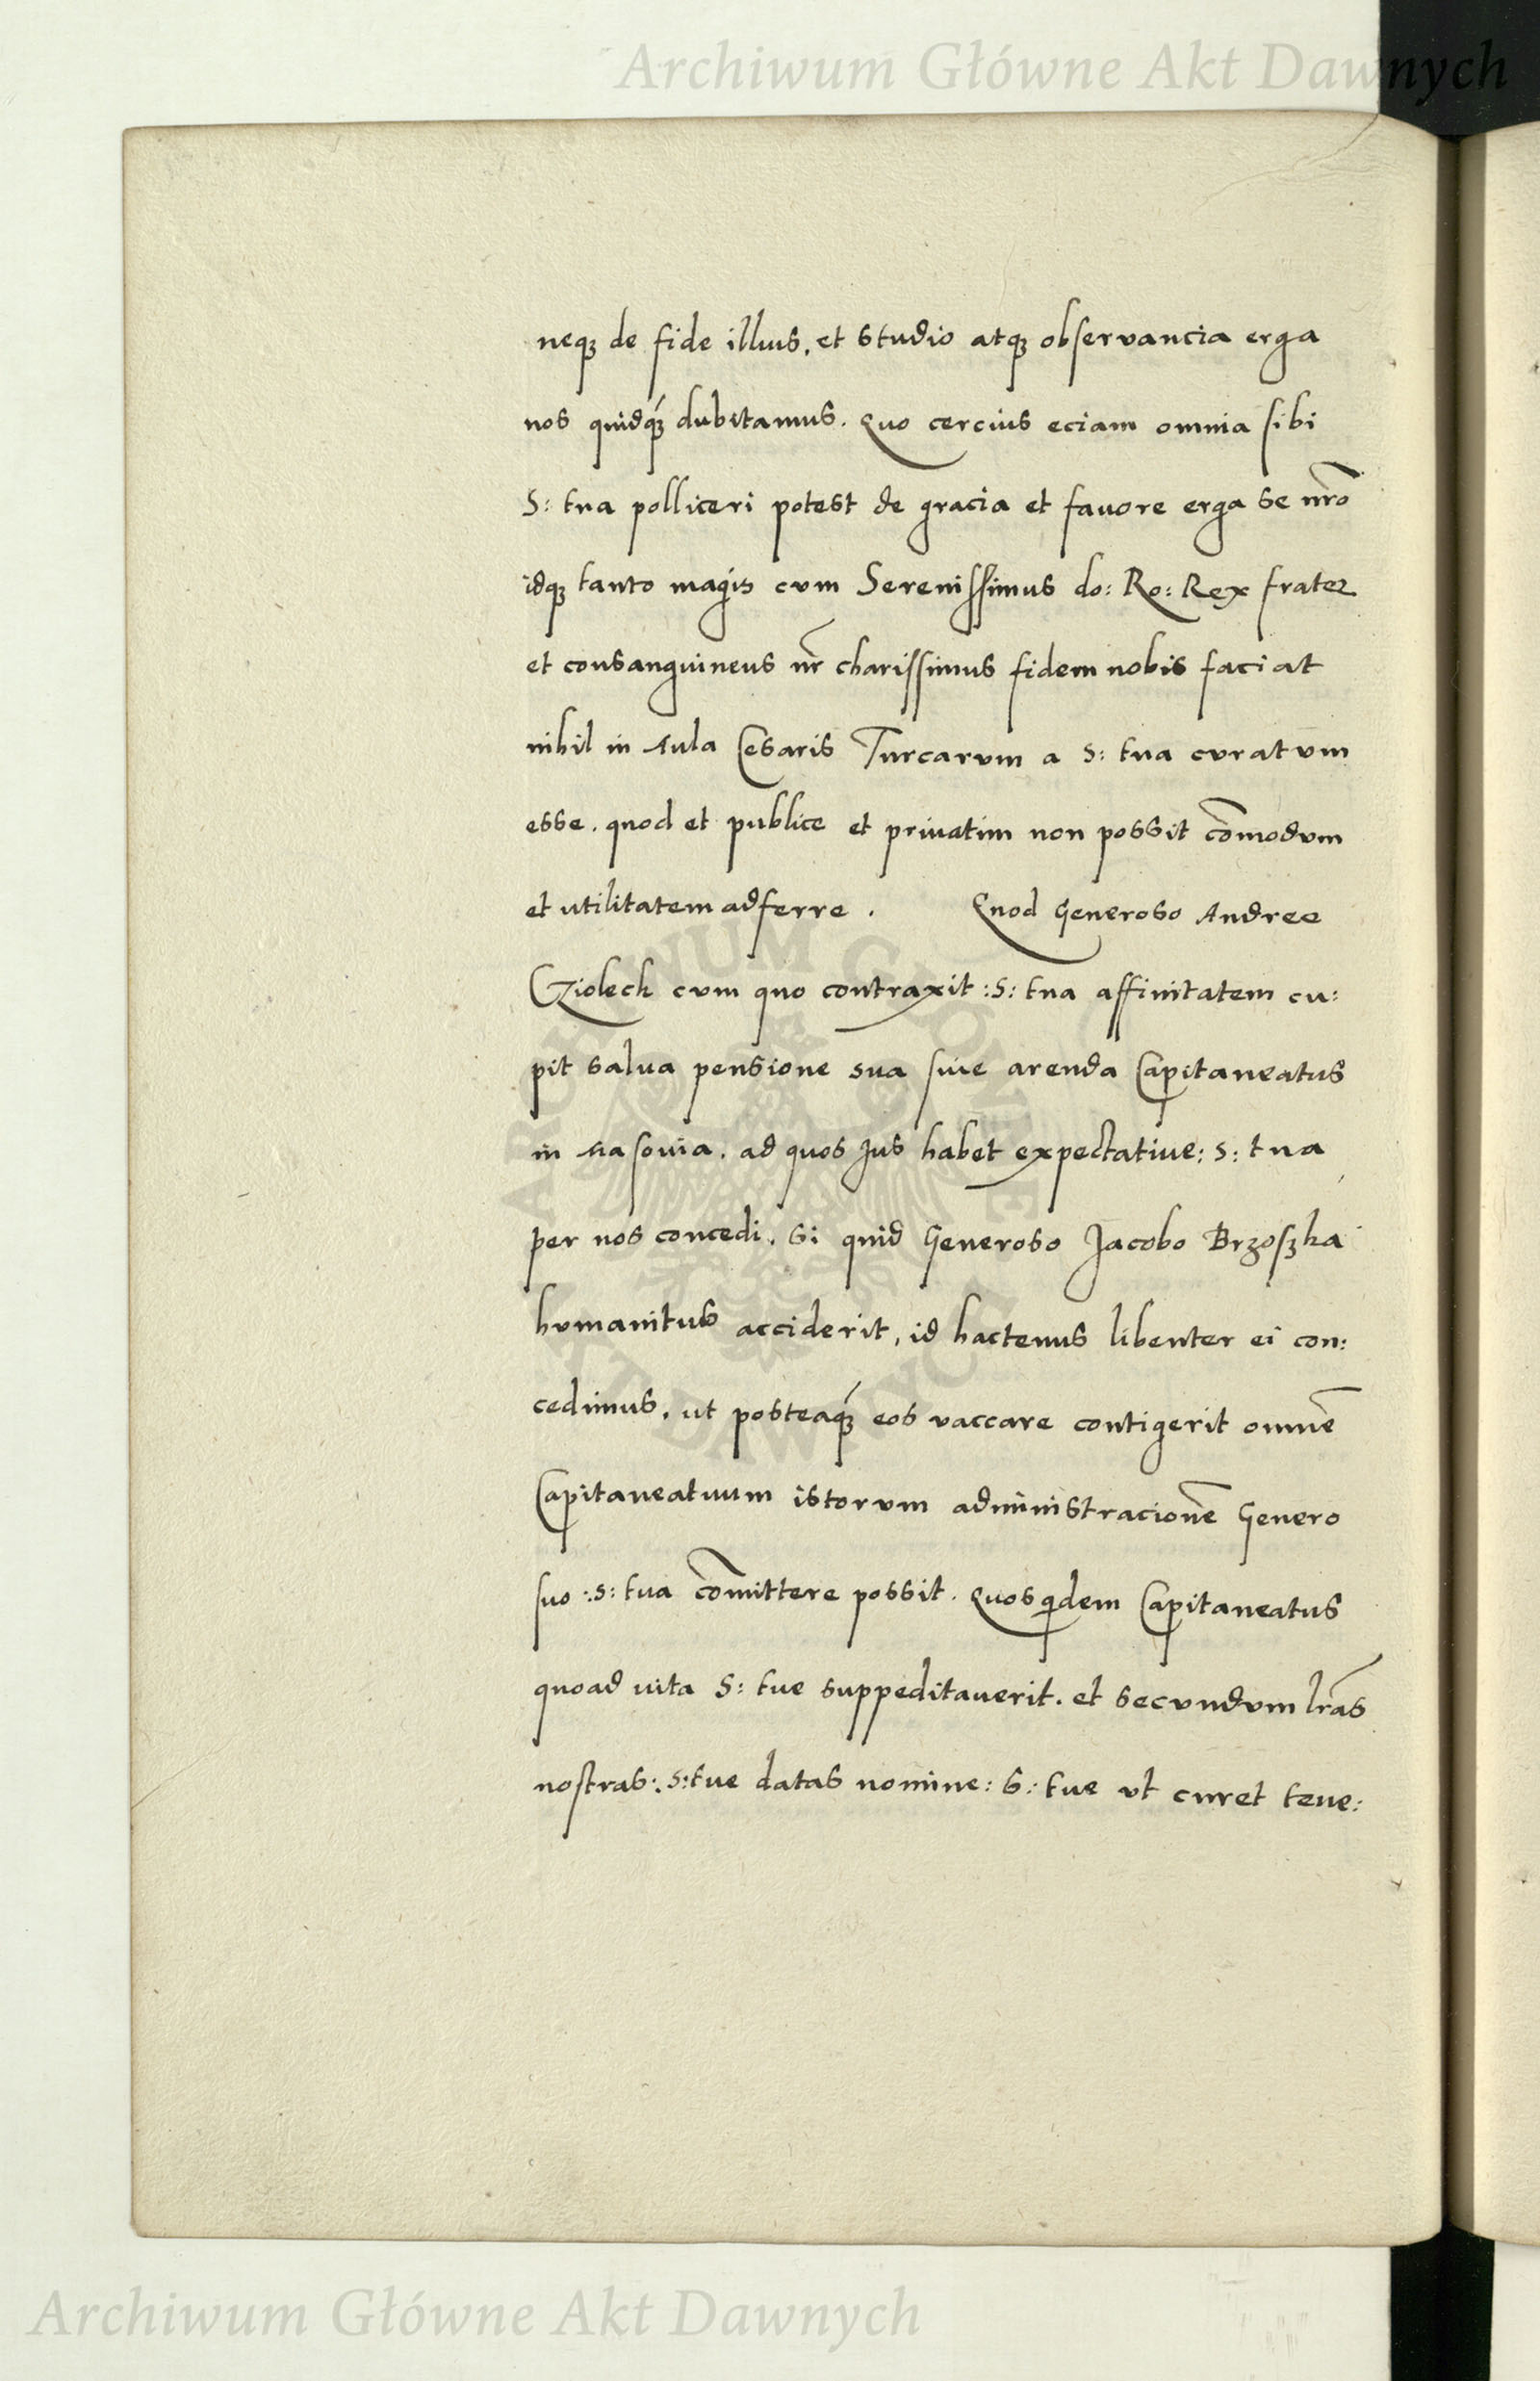 Archiwum Główne Akt Dawnych
neqꝫ de fide illius, et studio atqꝫ observancia erga
nos quidqꝫ́ dubitamus. Quo cercius eciam omnia sibi
S: tua polliceri potest de gracia et favore erga se nr̄o
idqꝫ tanto magis cvm Serenissimus do: Ro: Rex frater
et consanguineus nr̄ charissimus fidem nobis faciat
nihil in Aula Cesaris Turcarvm a S: tua cvratvm
esse. quod et publice et privatim non possit com̄odvm
et vtilitatem adferre. Quod Generoso Andree
Cziolech cvm quo contraxit :S: tua affinitatem cu:
pit salua pensione sua siue arenda Capitaneatus
in Masouia. ad quos Jus habet expectatiue: S: tua
per nos concedi. Si quid Generoso Jacobo Brzosƺka
hvmanitus acciderit, id hactenus libenter ei con:
cedimus. ut posteaqꝫ́ eos vaccare contigerit omnē
Capitaneatuum istorvm administracionē Genero
suo :S: tua com̄ittere possit. Quos qͥdem Capitaneatus
quoad vita S: tue suppeditauerit. et secvndvm lr̄as
nostras: S: tue datas nomine: S: tue vt curet tene:
ARCHIWUM GŁÓWNE
AKT DAWNYCH
Archiwum Główne Akt Dawnych